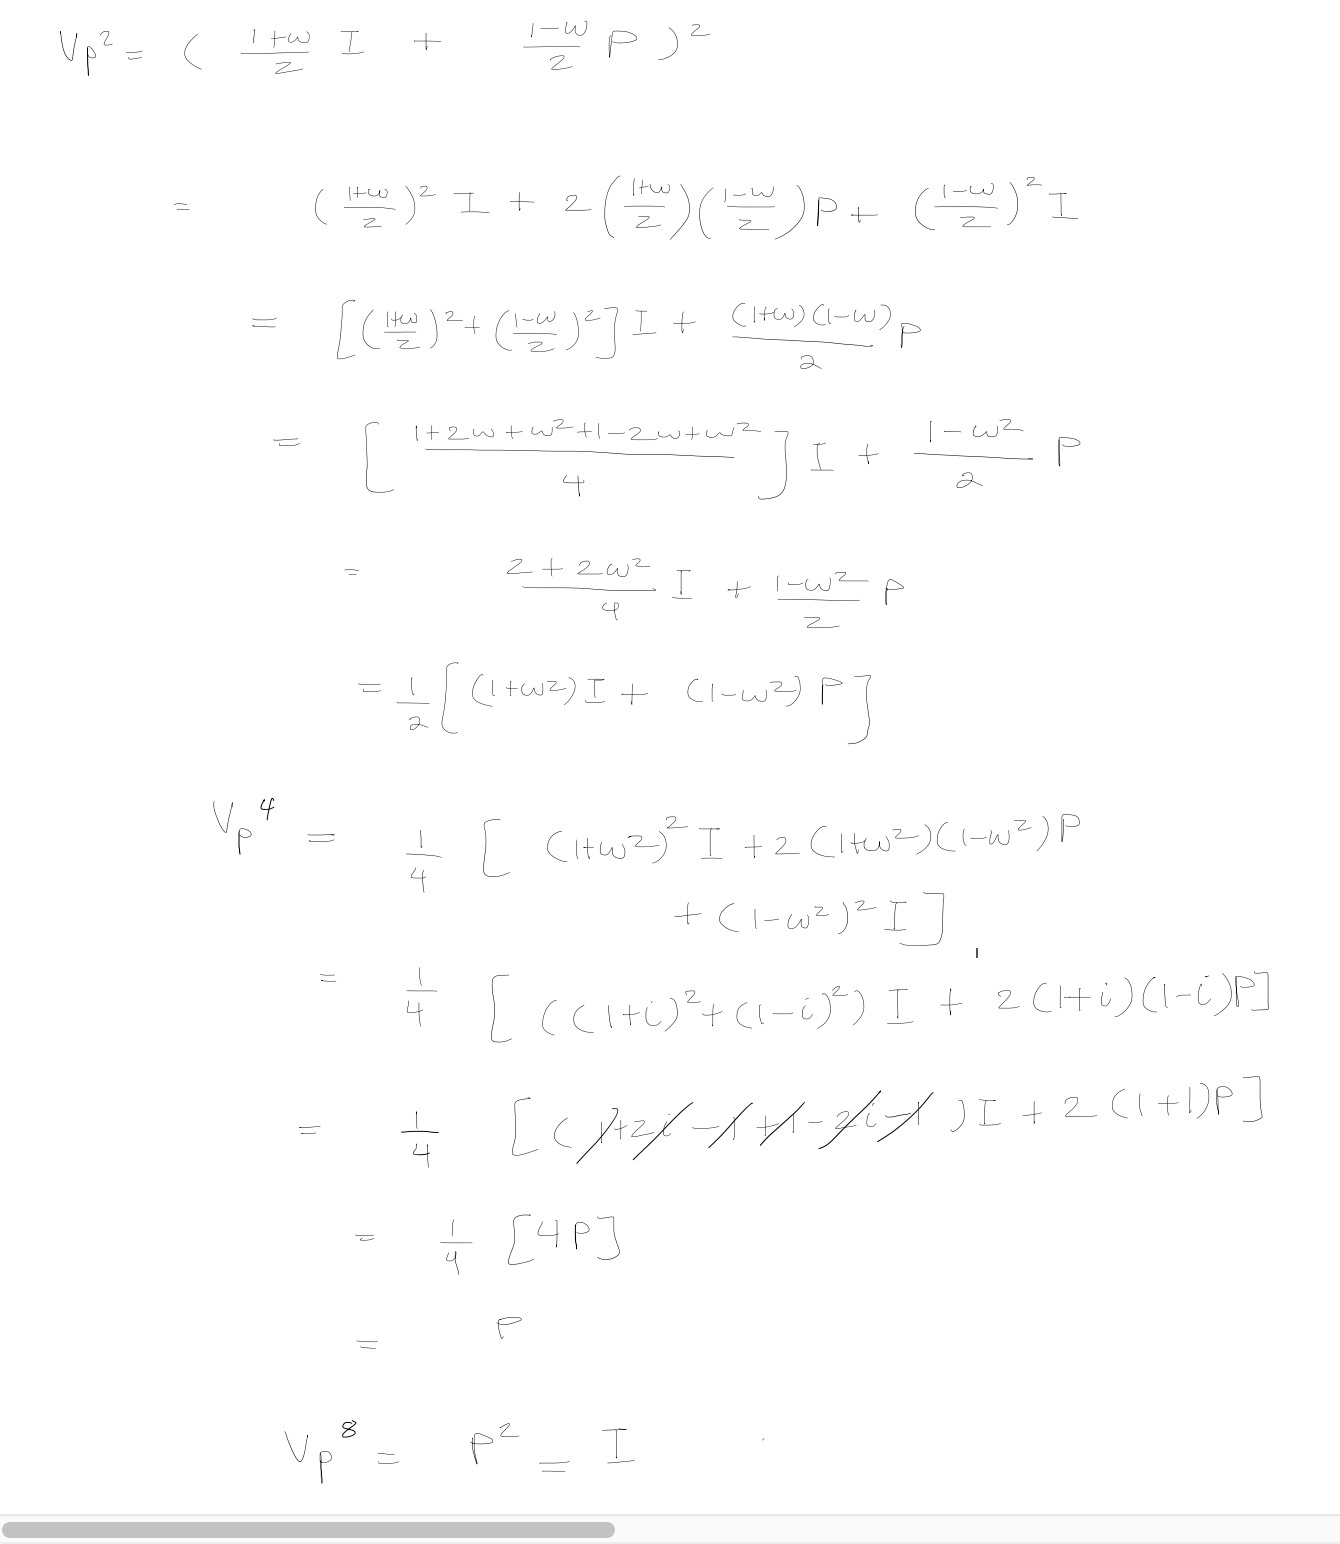 Vp² = ( (1+ω)/2 I + (1-ω)/2 P )²
= ((1+ω)/2)² I + 2((1+ω)/2)((1-ω)/2)P + ((1-ω)/2)² I
= [((1+ω)/2)² + ((1-ω)/2)²] I + (1+ω)(1-ω)/2 P
= [ (1+2ω+ω²+1-2ω+ω²)/4 ] I + (1-ω²)/2 P
= (2+2ω²)/4 I + (1-ω²)/2 P
= 1/2 [ (1+ω²) I + (1-ω²) P ]
Vp⁴ = 1/4 [ (1+ω²)² I + 2(1+ω²)(1-ω²) P
+ (1-ω²)² I ]
= 1/4 [ ((1+i)² + (1-i)²) I + 2(1+i)(1-i)P ]
= 1/4 [ (1+2i-1+1-2i-1) I + 2(1+1)P ]
= 1/4 [4P]
= P
Vp⁸ = P² = I